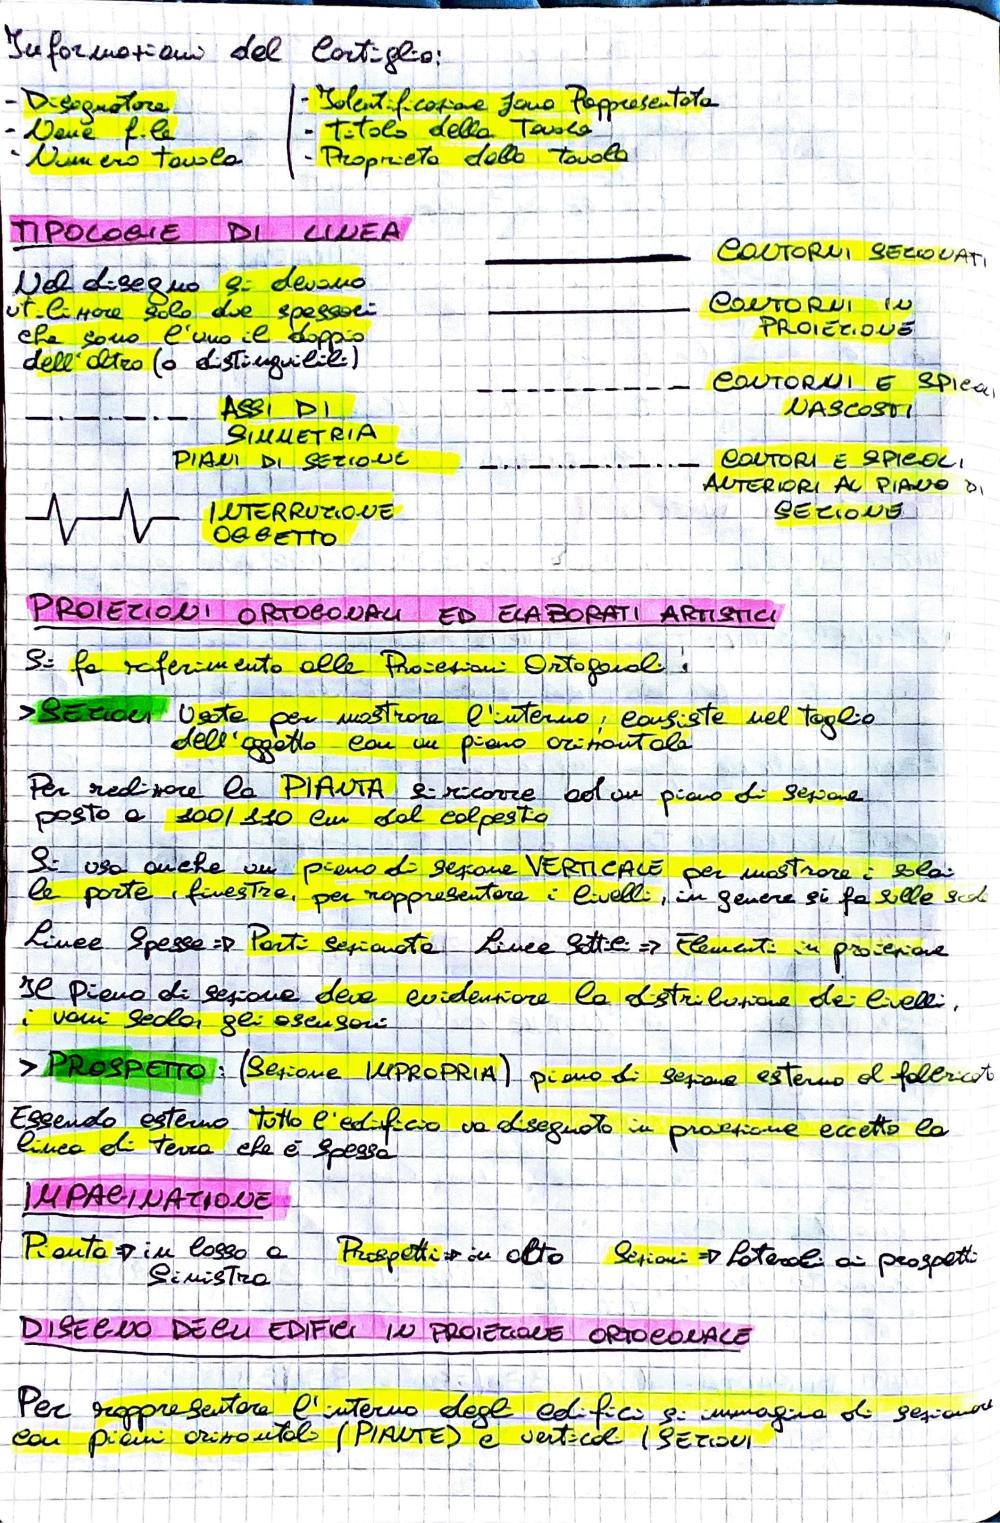 Informazioni del Cartiglio:
- Disegnatore
- Nome file
- Numero tavola
- Identificazione zona Rappresentata
- Titolo della Tavola
- Proprietà della tavola
TIPOLOGIE DI LINEA
Nel disegno si devono
utilizzare solo due spessori
che sono l'uno il doppio
dell'altro (o distinguibili)
CONTORNI SEZIONATI
CONTORNI IN
PROIEZIONE
CONTORNI E SPIGOLI
NASCOSTI
ASSI DI
SIMMETRIA
PIANI DI SEZIONE
CONTORI E SPIGOLI
ANTERIORI AL PIANO DI
SEZIONE
INTERRUZIONE
OGGETTO
PROIEZIONI ORTOGONALI ED ELABORATI ARTISTICI
Si fa referimento alle Proiezioni Ortogonali:
> SEZIONI Usate per mostrare l'interno, consiste nel taglio
dell'oggetto con un piano orizzontale
Per redizzare la PIANTA si ricorre ad un piano di sezione
posto a 100/110 cm dal calpestio
Si usa anche un piano di sezione VERTICALE per mostrare i solai
le porte, finestre, per rappresentare i livelli, in genere si fa sulle
Linee Spesse ⇒ Parti sezionate Linee Sottili ⇒ Elementi in proiezione
Il Piano di sezione deve evidenziare la distribuzione dei livelli,
i vani scala, gli ascensori
> PROSPETTO: (Sezione IMPROPRIA) piano di sezione esterno al fabbricato
Essendo esterno tutto l'edificio va disegnato in proiezione eccetto la
linea di terra che è spessa
IMPAGINAZIONE
Pianta ⇒ in basso a
Sinistra
Prospetti ⇒ in alto
Sezioni ⇒ Laterali ai prospetti
DISEGNO DEGLI EDIFICI IN PROIEZIONE ORTOGONALE
Per rappresentare l'interno degli edifici si immagina di sezionare
con piani orizzontali (PIANTE) e verticali (SEZIONI